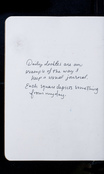 Daily doodles are an
example of the way I
keep a visual journal.
Each square depicts something
from my day.